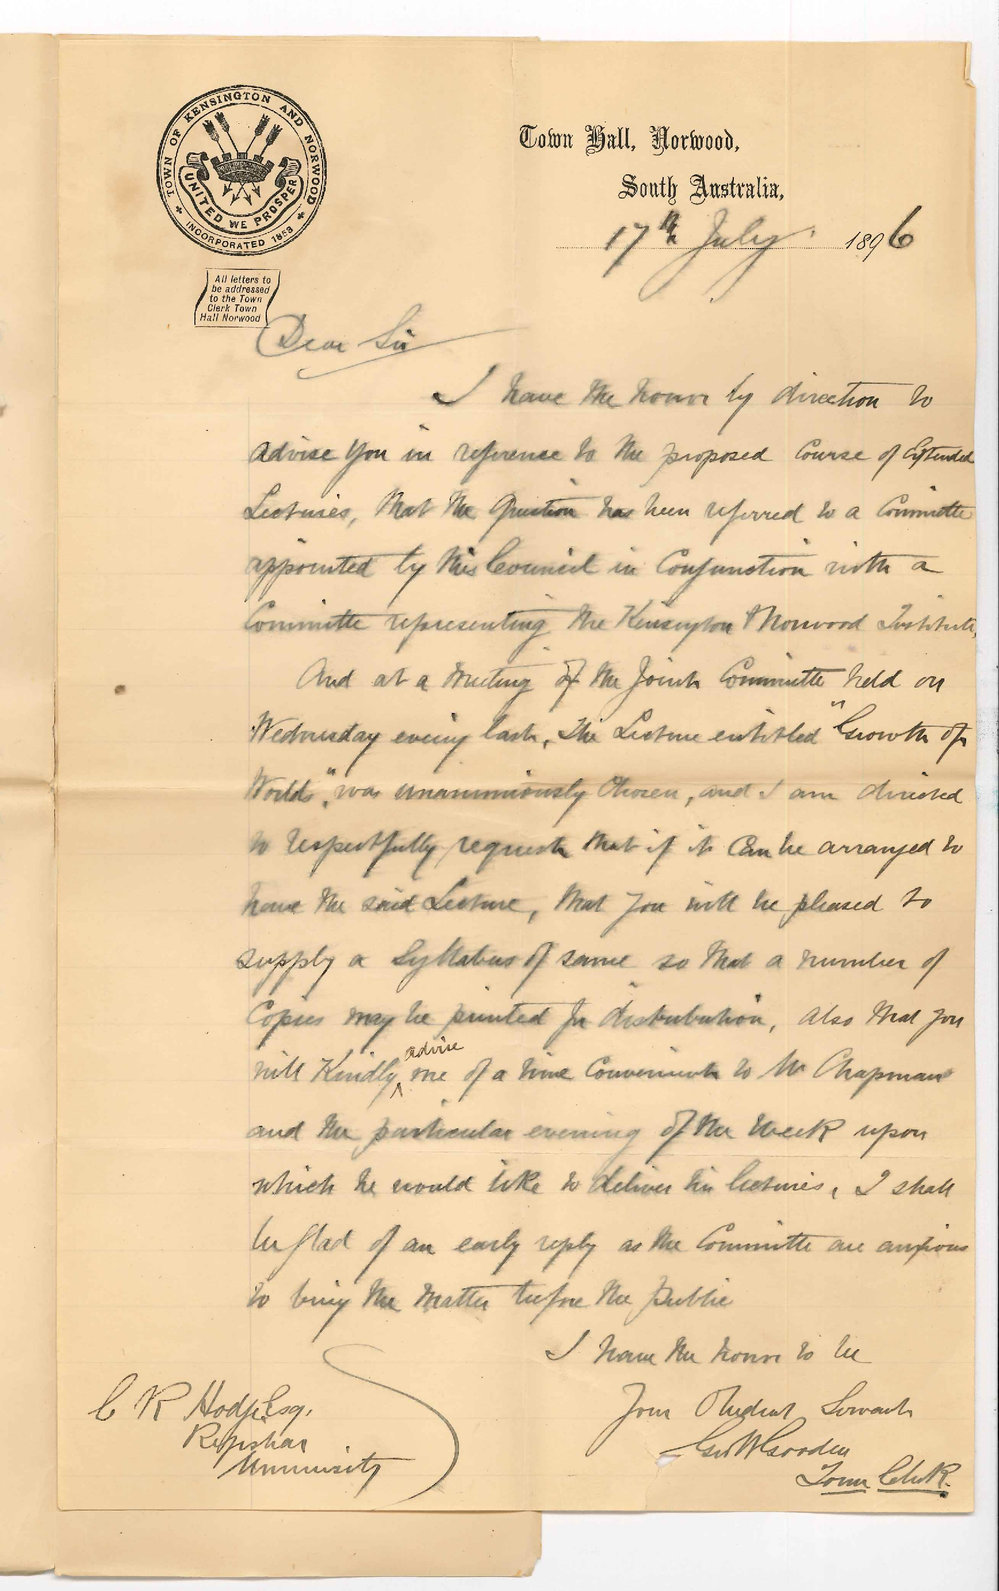 TOWN OF KENSINGTON AND NORWOOD
UNITED WE PROSPER
INCORPORATED 1853
All letters to
be addressed
to the Town
Clerk Town
Hall Norwood
Town Hall, Norwood,
South Australia,
17th July 1896
Dear Sir
I have the honor by direction to
advise you in reference to the proposed Course of Extended
Lectures, that the Question has been referred to a Committee
appointed by this Council in Conjunction with a
Committee representing the Kensington & Norwood Institute,
And at a meeting of the Joint Committee held on
Wednesday evening last, The Lecture entitled "Growth of
Worlds", was unanimously Chosen, and I am directed
to respectfully request that if it Can be arranged to
have the said Lecture, that you will be pleased to
supply a Syllabus of same so that a number of
Copies may be printed for distribution, also that you
will Kindly advise me of a time Convenient to Mr Chapman
and the particular evening of the week upon
which he would like to deliver his lectures, I shall
be glad of an early reply as the Committee are anxious
to bring the matter before the Public
I have the honor to be
Your Obedient Servant
Geo W Gooden
Town Clerk.
C R Hodge Esq.
Registrar
University